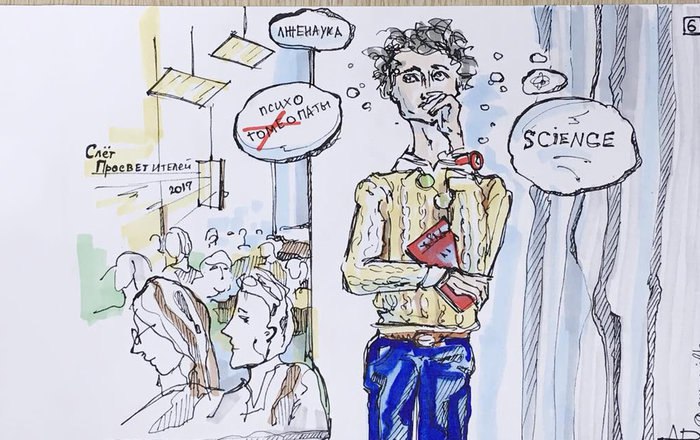 ЛЖЕНАУКА
ПСИХО
ГОМЕОПАТЫ
Слёт
Просветителей
2017
SCIENCE
6